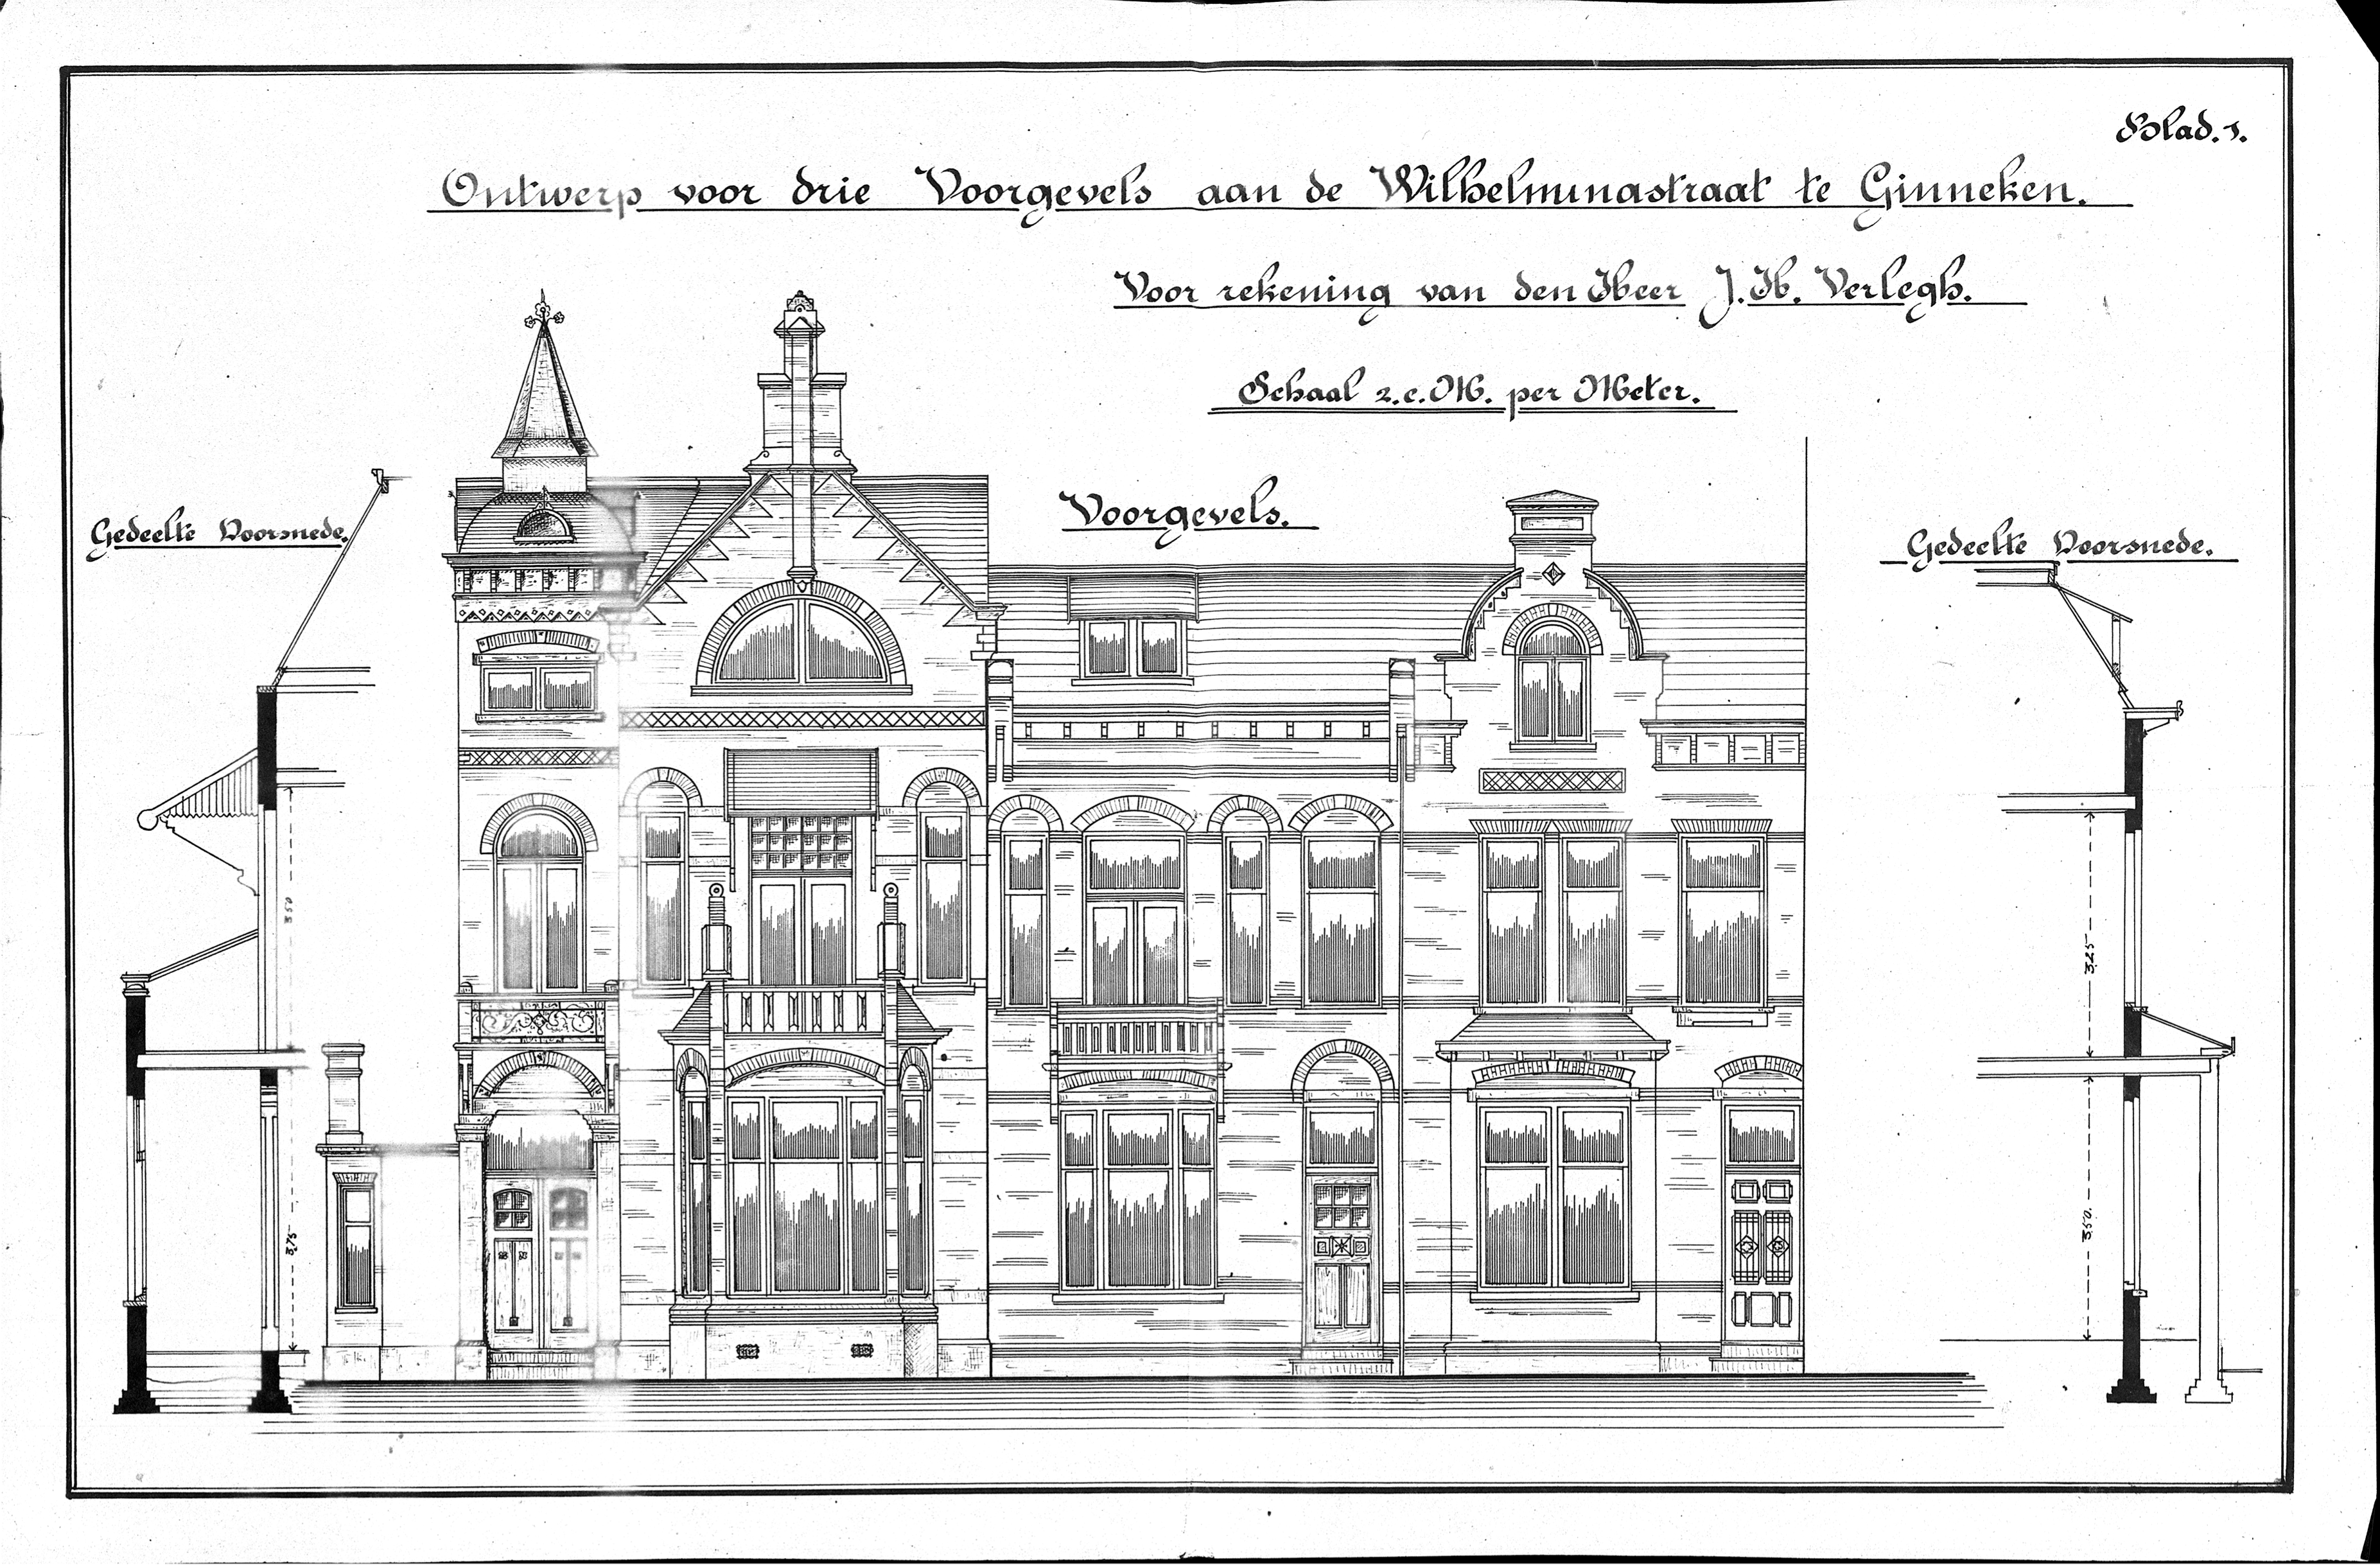 Blad. 1.
Ontwerp voor drie Voorgevels aan de Wilhelminastraat te Ginneken.
Voor rekening van den Heer J. H. Verlegh.
Schaal 2. c. M. per Meter.
Voorgevels.
Gedeelte Doorsnede.
Gedeelte Doorsnede.
3.50
3.75
3.25
3.50.